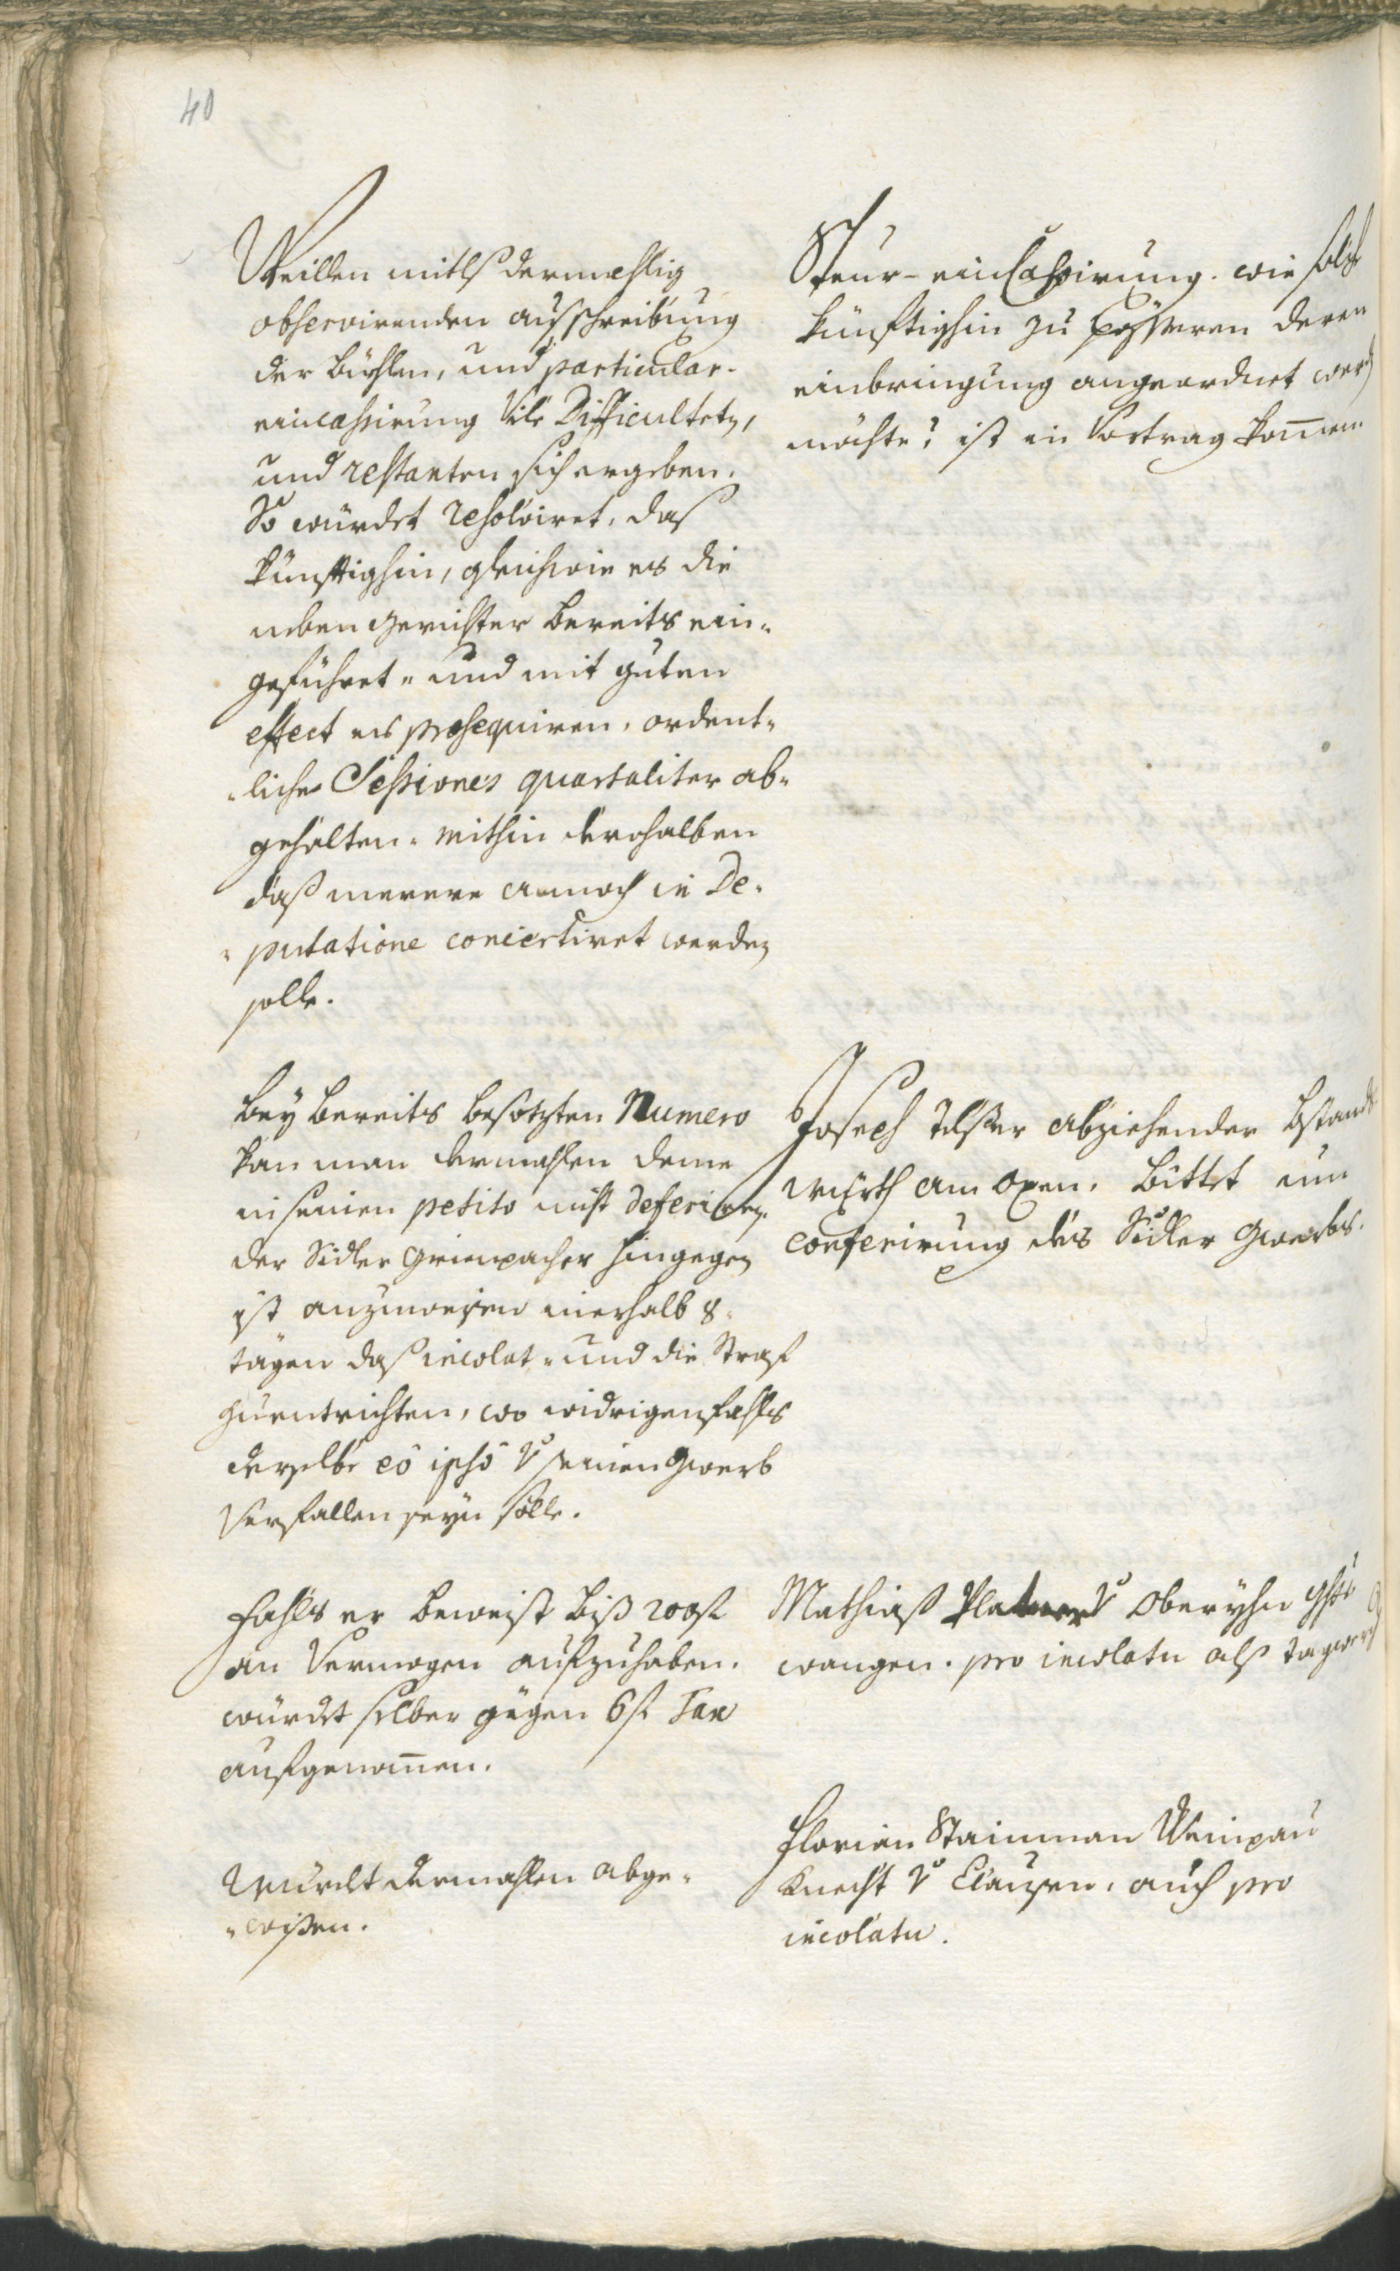 40
Weillen mitls dermahlig
observirenden ausschreibung
der büchlen, und particular-
eincassirung vile Difficulteten,
und restanten sich ergeben.
So würdet resolviret, das
künfftighin, gleichwie es die
neben gerichter bereits ein-
geführet- und mit guten
effect es prosequiren, ordent-
-liche Sessiones quartaliter ab-
gehalten- mithin derohalben
dass merere annoch in De-
-putatione concertiret werden
solle.
Steur-einCassirung. wie solche
künfftighin zu besseren deren
einbringung angeordnet werden
möchte? ist in Vortrag kom̅en
Bey bereits besetzten Numero
kan man dermahlen deme
in seinen petito nicht deferiren.
der Sidler Grienpacher hingegen
ist anzuweisen inerhalb 8.
tägen dass incolat- und die Straf
zuentrichten, wo widrigenfahls
derselbe eo ipso v seinen Gwerb
Verfallen seyn solle.
Joseph abziehender bstandt
würth am Oxen. Bittet um
conferirung des Sidler Gwerbs.
Fahls er beweist biss 200 fl
an Vermögen aufzuhaben.
würdet selber gegen 6 fl Tax
aufgenom̅en.
Mathiass Platner v
wangen. pro incolatu alss tagwercher
Würdet dermahlen abge-
-wisen.
Florian Stainman Weinpau
Knecht v Clausen, auch pro
incolatu.